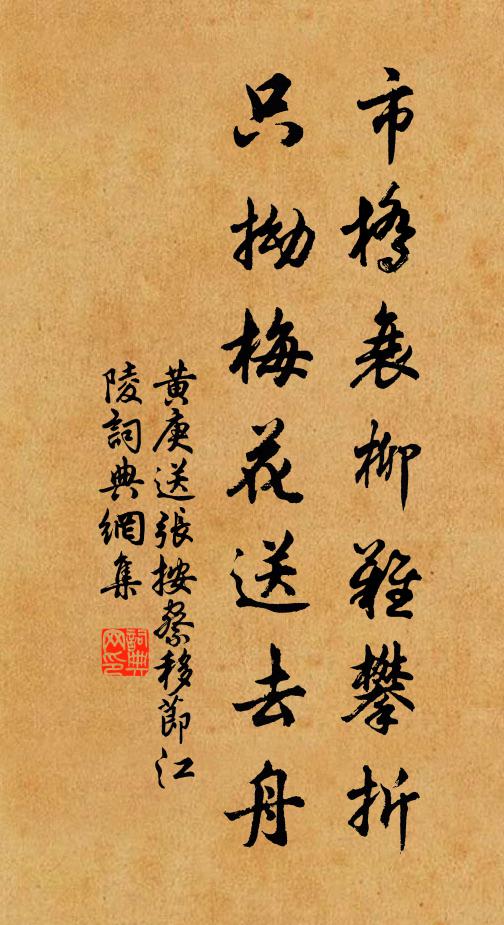 市橋衰柳難攀折
只拗梅花送去舟
黄庚送張按察移節江
陵詞典網集
詞典网印